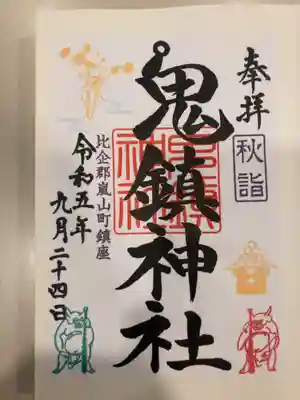 奉拝
秋詣
鬼鎮神社
鬼鎮神社
比企郡嵐山町鎮座
令和五年
九月二十四日